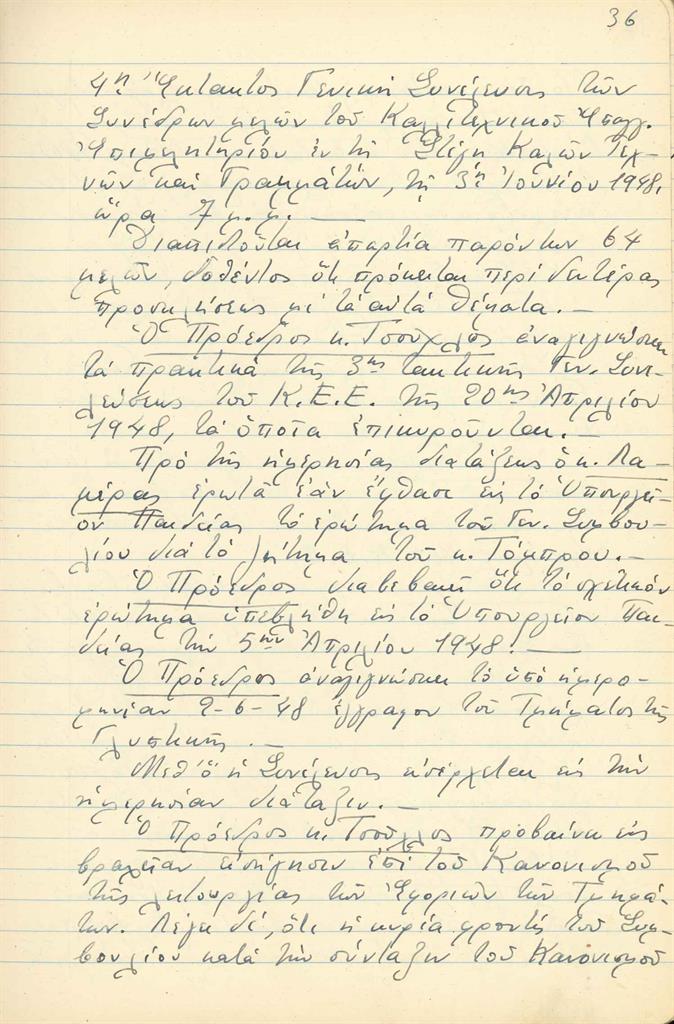 36
4η Ἔκτακτος Γενική Συνέλευσις τῶν
Συνέδρων μελῶν τοῦ Καλλιτεχνικοῦ Ἐπαγγ.
Ἐπιμελητηρίου ἐν τῇ Στέγῃ Καλῶν Τεχ-
νῶν καί Γραμμάτων, τῇ 3ῃ Ἰουνίου 1948,
ὥρα 7 μ.μ. —
Διαπιστοῦται ἀπαρτία παρόντων 64
μελῶν, δοθέντος ὅτι πρόκειται περί δευτέρας
προσκλήσεως μέ τά αὐτά θέματα. —
Ὁ Πρόεδρος κ. Τσοῦχλος ἀναγιγνώσκει
τά πρακτικά τῆς 3ης τακτικῆς Γεν. Συνε-
λεύσεως τοῦ Κ.Ε.Ε. τῆς 20ης Ἀπριλίου
1948, τά ὁποῖα ἐπικυροῦνται. —
Πρό τῆς ἡμερησίας διατάξεως ὁ κ. Λα-
μέρας ἐρωτᾶ ἐάν ἔφθασε εἰς τό Ὑπουργεῖ-
ον Παιδείας τό ἐρώτημα τοῦ Γεν. Συμβου-
λίου διά τό ζήτημα τοῦ κ. Τόμπρου. —
Ὁ Πρόεδρος διαβεβαιοῖ ὅτι τό σχετικόν
ἐρώτημα ὑπεβλήθη εἰς τό Ὑπουργεῖον Παι-
δείας τήν 5ην Ἀπριλίου 1948. —
Ὁ Πρόεδρος ἀναγιγνώσκει τό ὑπό ἡμερο-
μηνίαν 2-6-48 ἔγγραφον τοῦ Τμήματος τῆς
Γλυπτικῆς. —
Μεθ' ὅ ἡ Συνέλευσις εἰσέρχεται εἰς τήν
ἡμερησίαν διάταξιν. —
Ὁ Πρόεδρος κ. Τσοῦχλος προβαίνει εἰς
βραχεῖαν εἰσήγησιν ἐπί τοῦ Κανονισμοῦ
τῆς λειτουργίας τῶν Ἐφοριῶν τῶν Τμημά-
των. Λέγει δέ, ὅτι ἡ κυρία φροντίς τοῦ Συμ-
βουλίου κατά τήν σύνταξιν τοῦ Κανονισμοῦ